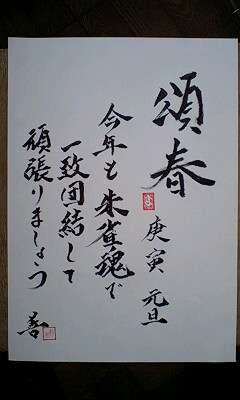 頌春
庚寅 元旦
今年も朱雀魂で
一致団結して
頑張りましょう
善